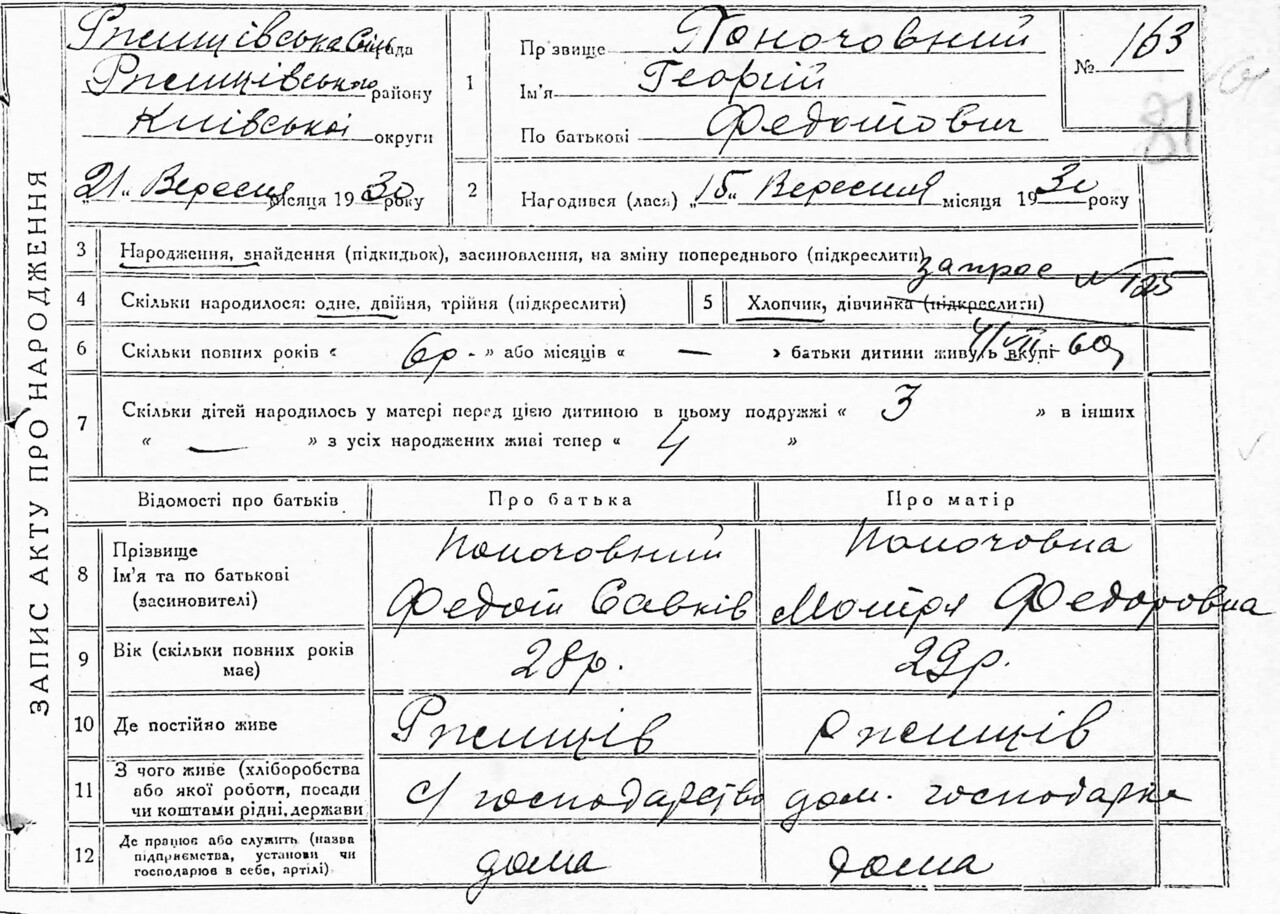 ЗАПИС АКТУ ПРО НАРОДЖЕННЯ
Ржищівська Сільрада
Ржищівського району
Київської округи
„21“ Вересня місяця 1930 року
1 Прізвище Поночовний
Ім'я Георгій
По батькові Федотович
№ 163
81
2 Народився (лася) „15“ Вересня місяця 1930 року
3 Народження, знайдення (підкидьок), засиновлення, на зміну попереднього (підкреслити)
запрос
№ 125
4 Скільки народилося: одне, двійня, трійня (підкреслити)
5 Хлопчик, дівчинка (підкреслити)
4/VII-60
6 Скільки повних років « 6р. » або місяців « — » батьки дитини живуть вкупі
7 Скільки дітей народилось у матері перед цією дитиною в цьому подружжі « 3 » в інших
« — » з усіх народжених живі тепер « 4 »
Відомості про батьків Про батька Про матір
8 Прізвище Поночовний Поночовна
Ім'я та по батькові Федот Савків Мотря Федоровна
(засиновителі)
9 Вік (скільки повних років має) 28р. 29р.
10 Де постійно живе Ржищів Ржищів
11 З чого живе (хліборобства
або якої роботи, посади с/господарство дом. господарка
чи коштами рідні, держави
12 Де працює або служить (назва
підприємства, установи чи дома дома
господарює в себе, артілі)